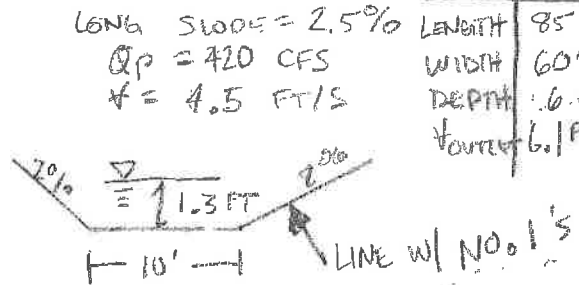 LONG SLOOE = 2.5%
QP = 420 CFS
V = 4.5 FT/S
LENGTH 85
WIDTH 60
DEPTH .6
VOUTLET 6.1 F
2%
2%
1.3 FT
10'
LINE W/ NO. 1'S